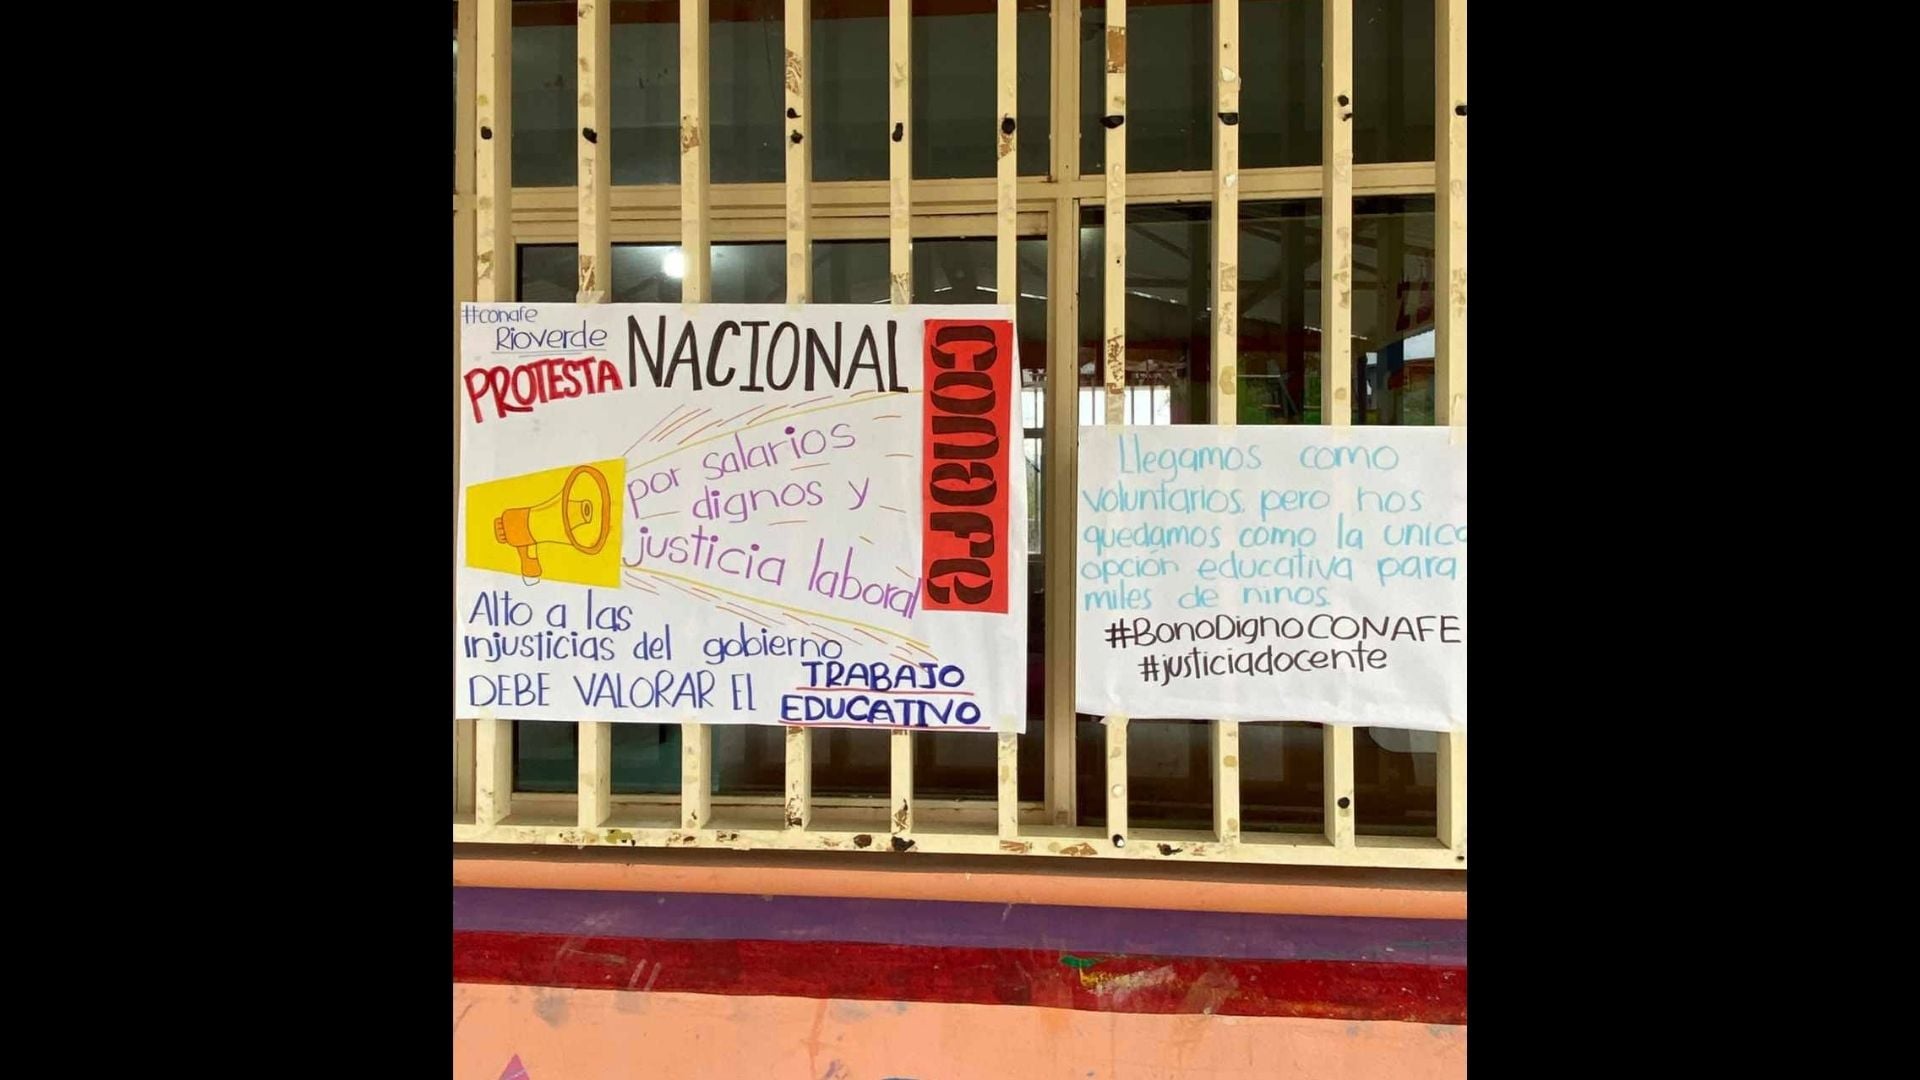 #conafe
Rioverde
PROTESTA NACIONAL
conafe
por salarios
dignos y
justicia laboral
Alto a las
Injusticias del gobierno
DEBE VALORAR EL TRABAJO
EDUCATIVO
Llegamos como
voluntarios, pero nos
quedamos como la unica
opción educativa para
miles de ninos
#BonoDignoCONAFE
#justiciadocente